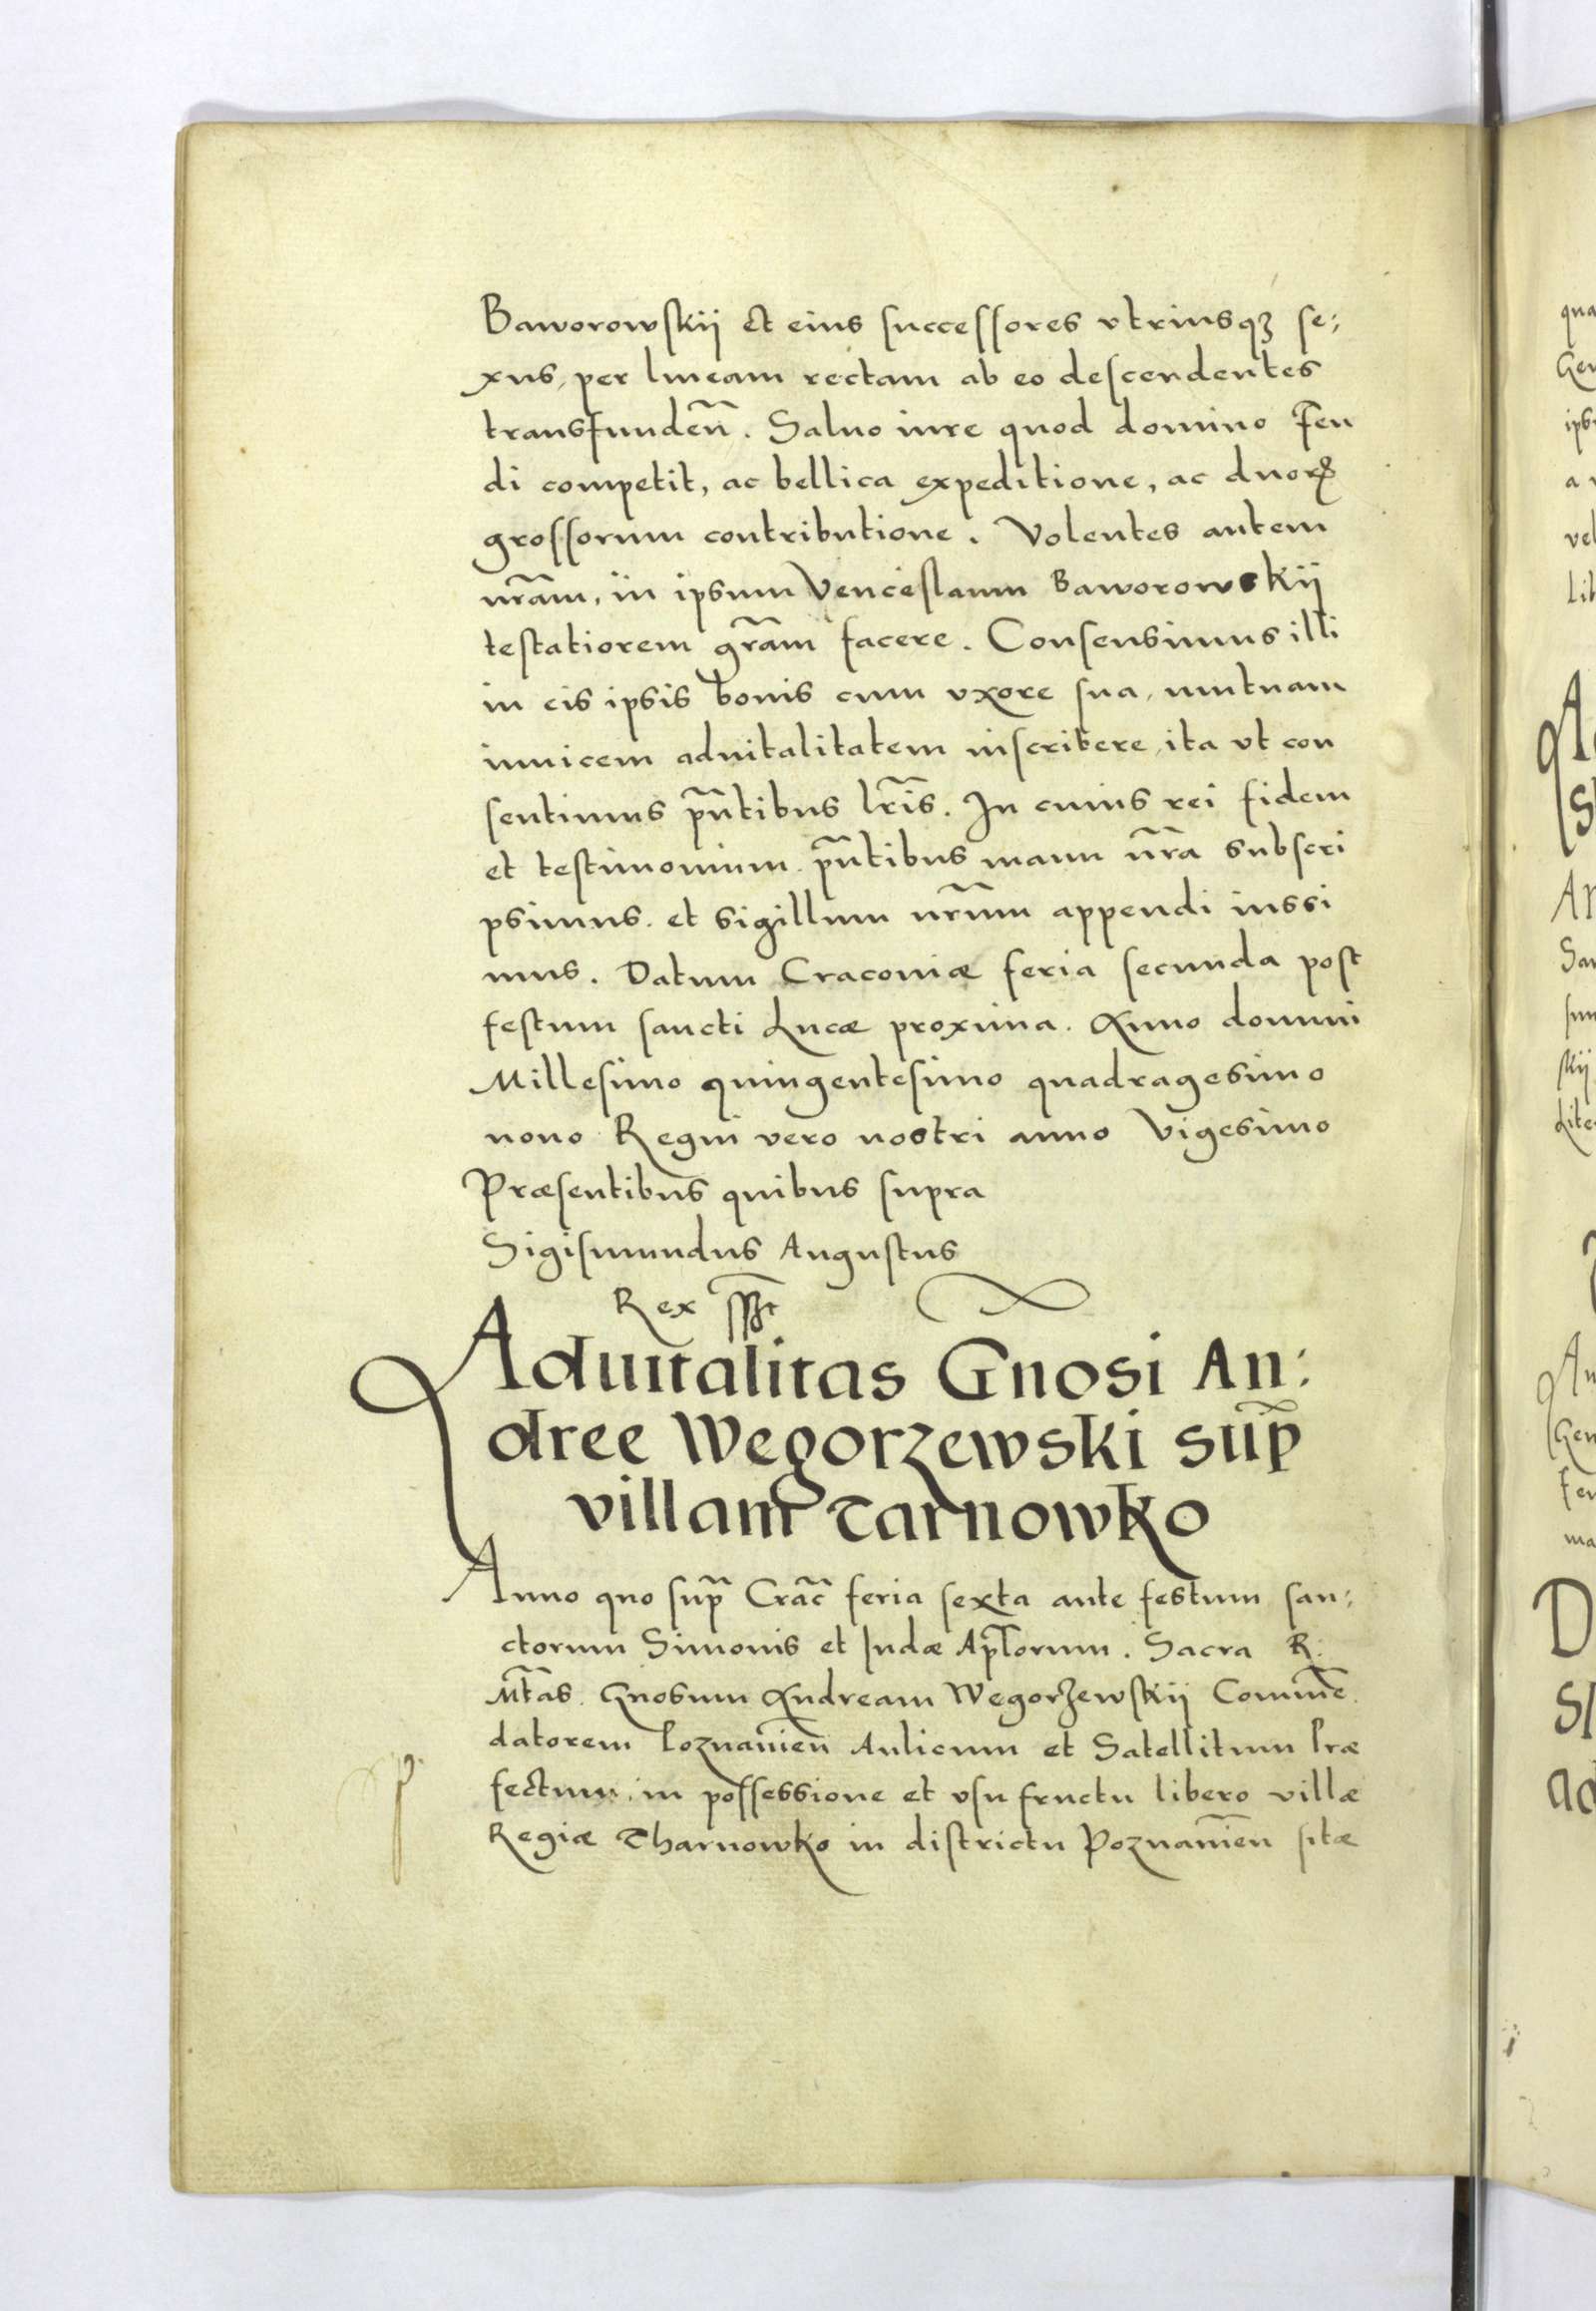 Baworowskij et eius successores vtriusqꝫ se;
xus, per lineam rectam ab eo descendentes
transfundeñ. Saluo iure quod domino feu
di competit, ac bellica expeditione, ac duorꝝ
grossorum contributione. Volentes autem
nr̃am, in ipsum Venceslaum Baworowskij
testatiorem gr̃am facere. Consensimus illi
in eis ipsis bonis cum vxore sua, mutuam
inuicem aduitalitatem inscribere, ita vt con
sentimus pñtibus lr̃is. In cuius rei fidem
et testimonium pñtibus manu nr̃a subscri
psimus. et sigillum nr̃um appendi iussi
mus. Datum Cracouiæ feria secunda post
festum sancti Lucæ proxima. Anno domini
Millesimo quingentesimo quadragesimo
nono Regni vero nostri anno Vigesimo
Præsentibus quibus supra
Sigismundus Augustus
Rex
Aduitalitas Gnosi An:
dree Wegorzewski sup̃
villam Tarnowko
Anno quo sup̃ Crac̃ feria sexta ante festum san;
ctorum Simonis et Iudæ Apl̃orum. Sacra R.
Mt̃as. Gnosum Andream Wegorzewskij Comme̅
datorem Poznanien̅ Aulicum et Satellitum Præ
fectum, in possessione et vsu fructu libero villæ
Regiæ Tharnowko in districtu Poznanien̅ sitæ